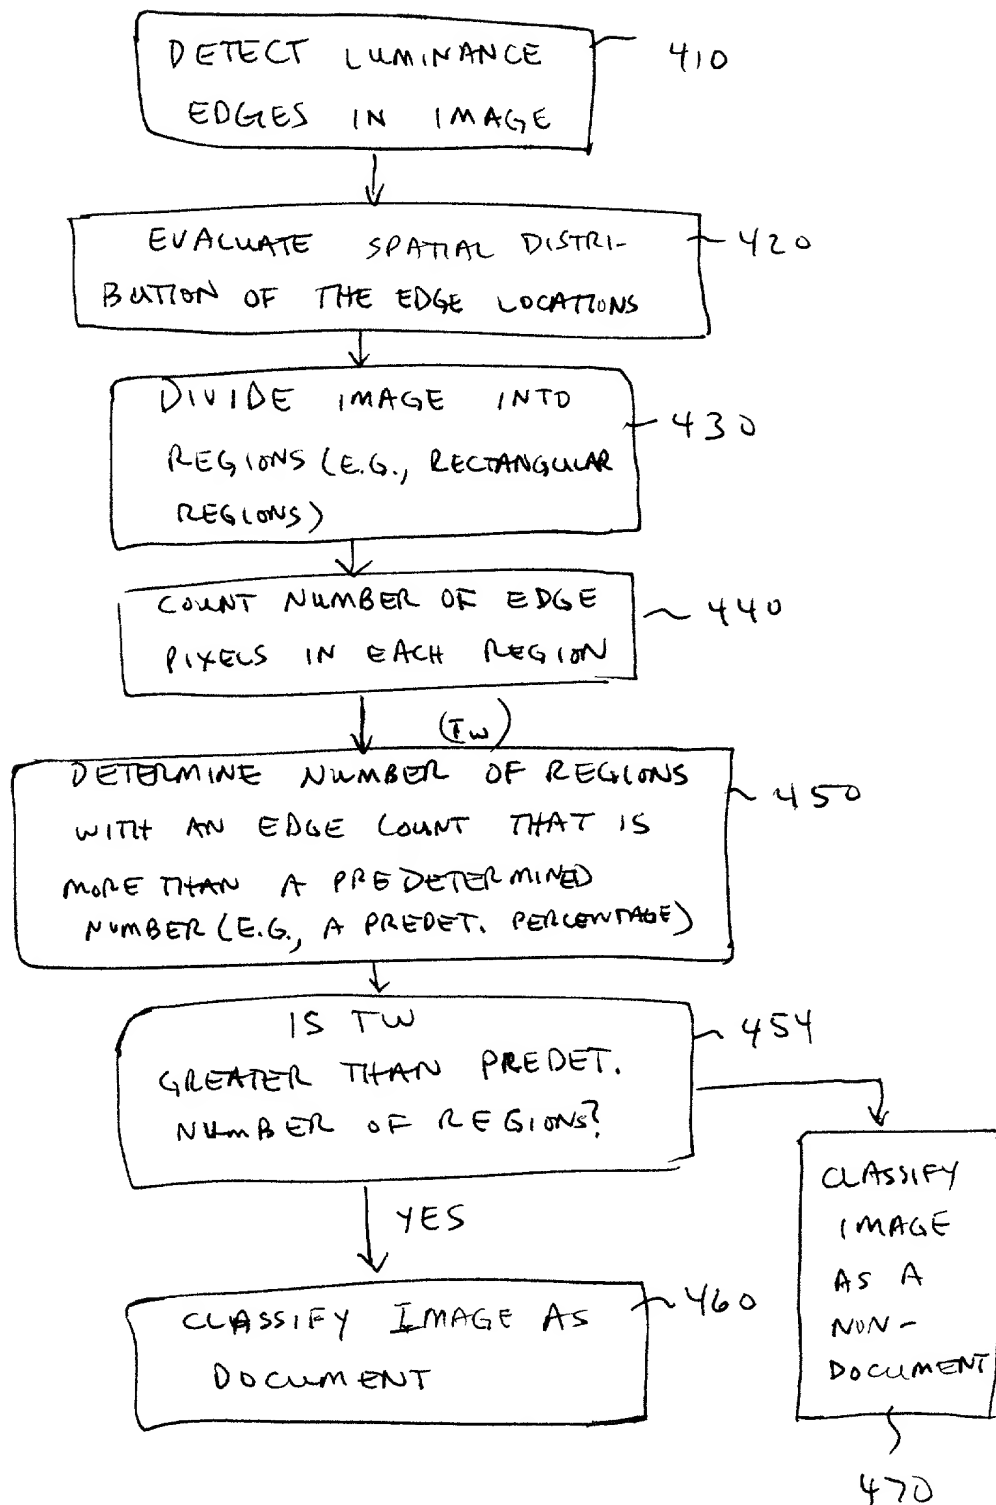 DETECT LUMINANCE
EDGES IN IMAGE
410
EVALUATE SPATIAL DISTRI-
BUTION OF THE EDGE LOCATIONS
420
DIVIDE IMAGE INTO
REGIONS (E.G., RECTANGULAR
REGIONS)
430
COUNT NUMBER OF EDGE
PIXELS IN EACH REGION
440
(TW)
DETERMINE NUMBER OF REGIONS
WITH AN EDGE COUNT THAT IS
MORE THAN A PREDETERMINED
NUMBER (E.G., A PREDET. PERCENTAGE)
450
IS TW
GREATER THAN PREDET.
NUMBER OF REGIONS?
454
YES
CLASSIFY IMAGE AS
DOCUMENT
460
CLASSIFY
IMAGE
AS A
NON-
DOCUMENT
470